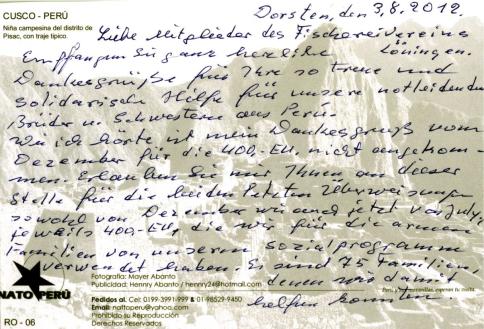 CUSCO - PERÚ
Niña campesina del distrito de
Pisac, con traje típico.
Dorsten, den 3.8.2012.
Liebe Mitglieder des Fischereivereins
Löningen.
Empfangen Sie ganz herzliche
Dankesgrüße für Ihre so treue und
solidarische Hilfe für unsere notleidenden
Brüder u. Schwestern aus Perú.
Wie ich hörte ist mein Dankesgruß vom
Dezember für die 400,- EU, nicht angekom-
men. Erlauben Sie mir Ihnen an dieser
Stelle für die beiden letzten Überweisungen
sowohl von Dezember wie auch jetzt von July,
jeweils 400,- EU, die wir für die armen
Familien von unserem Sozialprogramm
verwendet haben. Es sind 75 Familien,
denen wir damit
helfen konnten
NATO PERÚ
Fotografía: Mayer Abanto
Publicidad: Hennry Abanto / hennry24@hotmail.com
Pedidos al. Cel: 0199-3991-999 & 01-98529-9450
Email: nattoperu@yahoo.com
Prohibido su Reproducción
Derechos Reservados
RO - 06